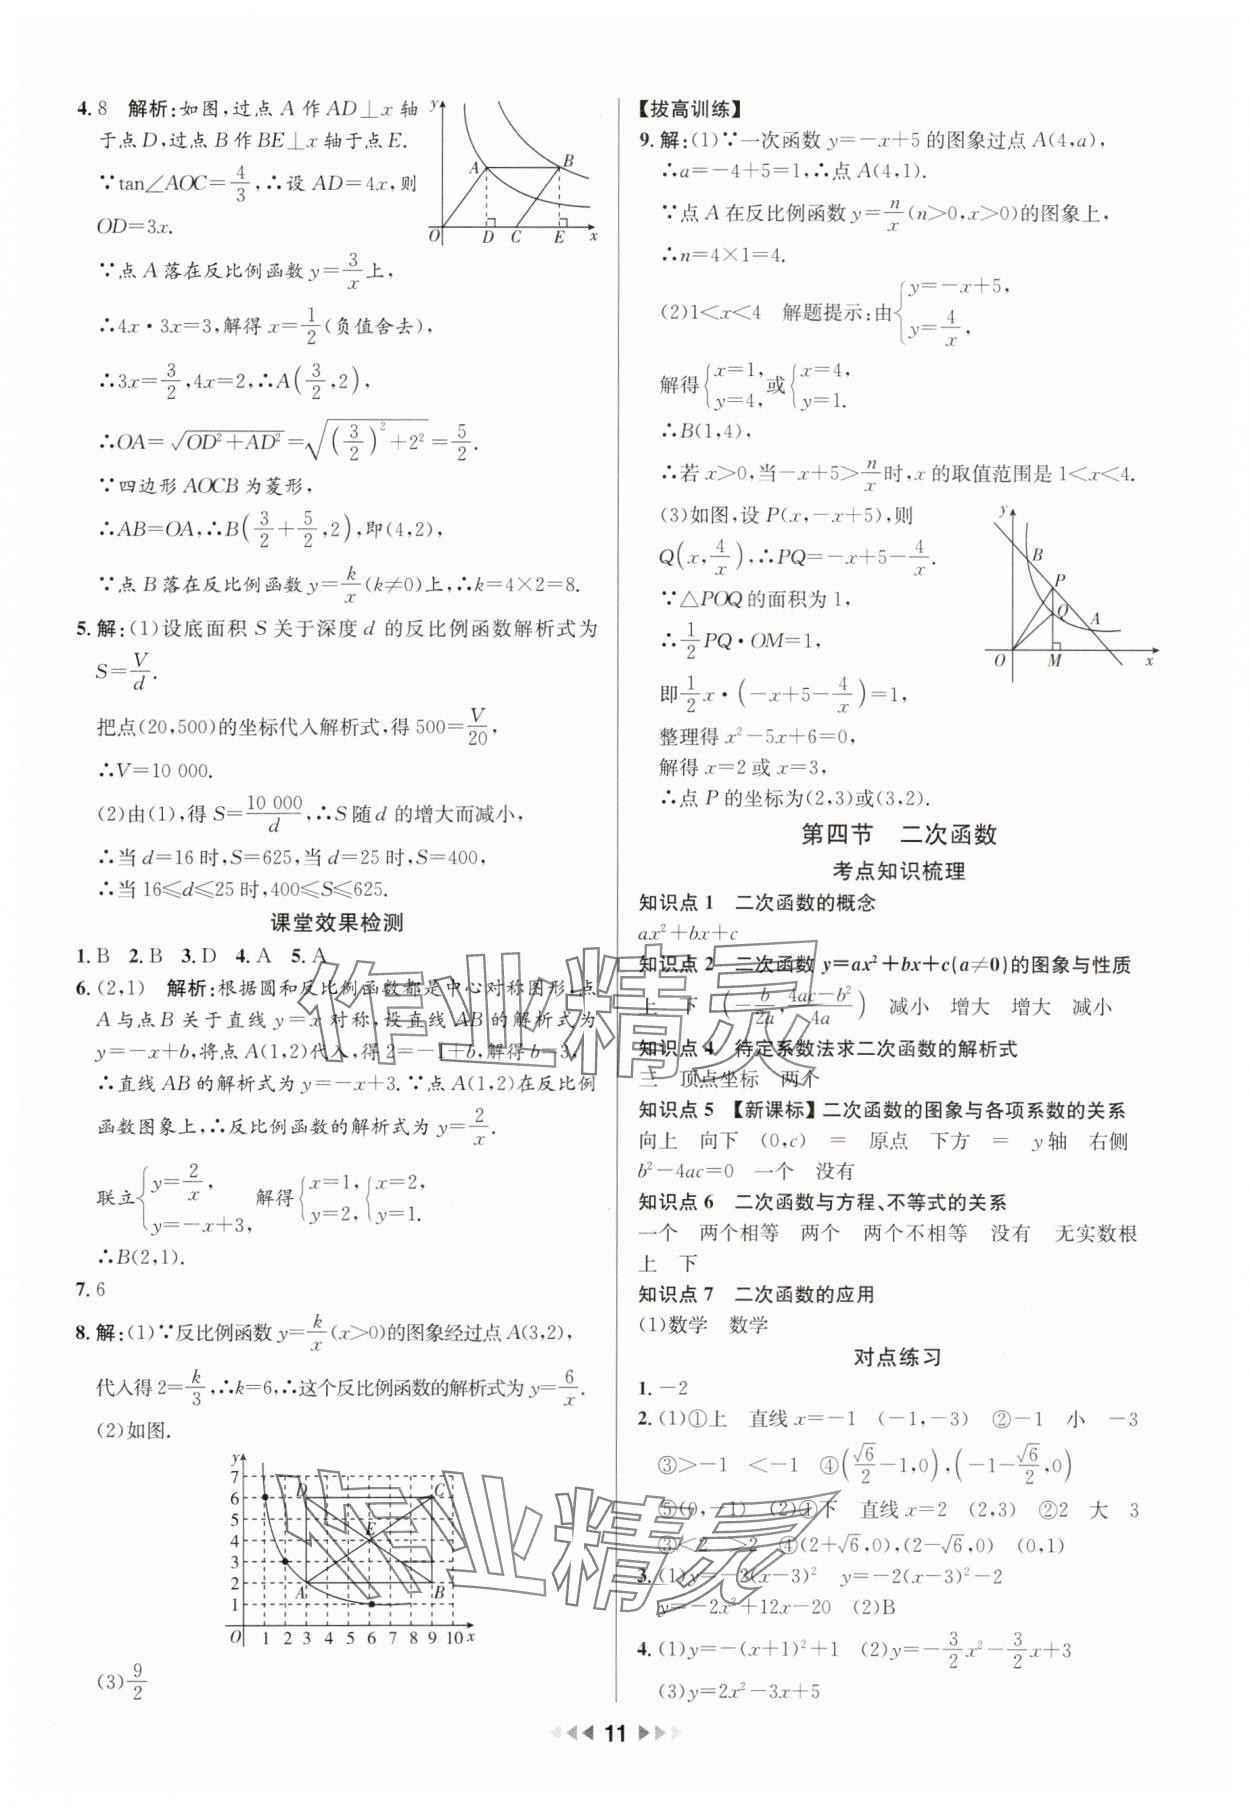 4. 8　解析:如图,过点 A 作 AD⊥x 轴
于点 D,过点 B 作 BE⊥x 轴于点 E.
∵tan∠AOC=4/3,∴设 AD=4x,则
OD=3x.
∵点 A 落在反比例函数 y=3/x 上,
∴4x·3x=3,解得 x=1/2(负值舍去),
∴3x=3/2,4x=2,∴A(3/2,2),
∴OA=√(OD²+AD²)=√((3/2)²+2²)=5/2.
∵四边形 AOCB 为菱形,
∴AB=OA,∴B(3/2+5/2,2),即(4,2),
∵点 B 落在反比例函数 y=k/x(k≠0)上,∴k=4×2=8.
y
A
B
O
D
C
E
x
5. 解:(1)设底面积 S 关于深度 d 的反比例函数解析式为
S=V/d.
把点(20,500)的坐标代入解析式,得 500=V/20,
∴V=10 000.
(2)由(1),得 S=10 000/d,∴S 随 d 的增大而减小,
∴当 d=16 时,S=625,当 d=25 时,S=400,
∴当 16≤d≤25 时,400≤S≤625.
课堂效果检测
1. B　2. B　3. D　4. A　5. A
6. (2,1)　解析:根据圆和反比例函数都是中心对称图形,点
A 与点 B 关于直线 y=x 对称,设直线 AB 的解析式为
y=-x+b,将点 A(1,2)代入,得 2=-1+b,解得 b=3,
∴直线 AB 的解析式为 y=-x+3.∵点 A(1,2)在反比例
函数图象上,∴反比例函数的解析式为 y=2/x.
联立{y=2/x, y=-x+3,　解得{x=1, y=2,{x=2, y=1.
∴B(2,1).
7. 6
8. 解:(1)∵反比例函数 y=k/x(x>0)的图象经过点 A(3,2),
代入得 2=k/3,∴k=6,∴这个反比例函数的解析式为 y=6/x.
(2)如图.
y
7
6
5
4
3
2
1
D
C
E
A
B
O 1 2 3 4 5 6 7 8 9 10 x
(3)9/2
【拔高训练】
9. 解:(1)∵一次函数 y=-x+5 的图象过点 A(4,a),
∴a=-4+5=1,∴点 A(4,1).
∵点 A 在反比例函数 y=n/x(n>0,x>0)的图象上,
∴n=4×1=4.
(2)1<x<4　解题提示:由{y=-x+5, y=4/x,
解得{x=1, y=4,或{x=4, y=1.
∴B(1,4),
∴若 x>0,当-x+5>n/x时,x 的取值范围是 1<x<4.
(3)如图,设 P(x,-x+5),则
Q(x,4/x),∴PQ=-x+5-4/x.
∵△POQ 的面积为 1,
∴1/2 PQ·OM=1,
即1/2 x·(-x+5-4/x)=1,
整理得 x²-5x+6=0,
解得 x=2 或 x=3,
∴点 P 的坐标为(2,3)或(3,2).
y
B
P
Q
A
O
M
x
第四节　二次函数
考点知识梳理
知识点 1　二次函数的概念
ax²+bx+c
知识点 2　二次函数 y=ax²+bx+c(a≠0)的图象与性质
上　下　(-b/2a,4ac-b²/4a)　减小　增大　增大　减小
知识点 4　待定系数法求二次函数的解析式
三　顶点坐标　两个
知识点 5　【新课标】二次函数的图象与各项系数的关系
向上　向下　(0,c)　=　原点　下方　=　y 轴　右侧
b²-4ac=0　一个　没有
知识点 6　二次函数与方程、不等式的关系
一个　两个相等　两个　两个不相等　没有　无实数根
上　下
知识点 7　二次函数的应用
(1)数学　数学
对点练习
1. -2
2. (1)①上　直线 x=-1　(-1,-3)　②-1　小　-3
③>-1　<-1　④(√6/2-1,0),(-1-√6/2,0)
⑤(0,-1)　(2)①下　直线 x=2　(2,3)　②2　大　3
③<2　>2　④(2+√6,0),(2-√6,0)　(0,1)
3. (1)y=-3(x-3)²　y=-2(x-3)²-2
y=-2x²+12x-20　(2)B
4. (1)y=-(x+1)²+1　(2)y=-3/2x²-3/2x+3
(3)y=2x²-3x+5
11
作业精灵
作业精灵